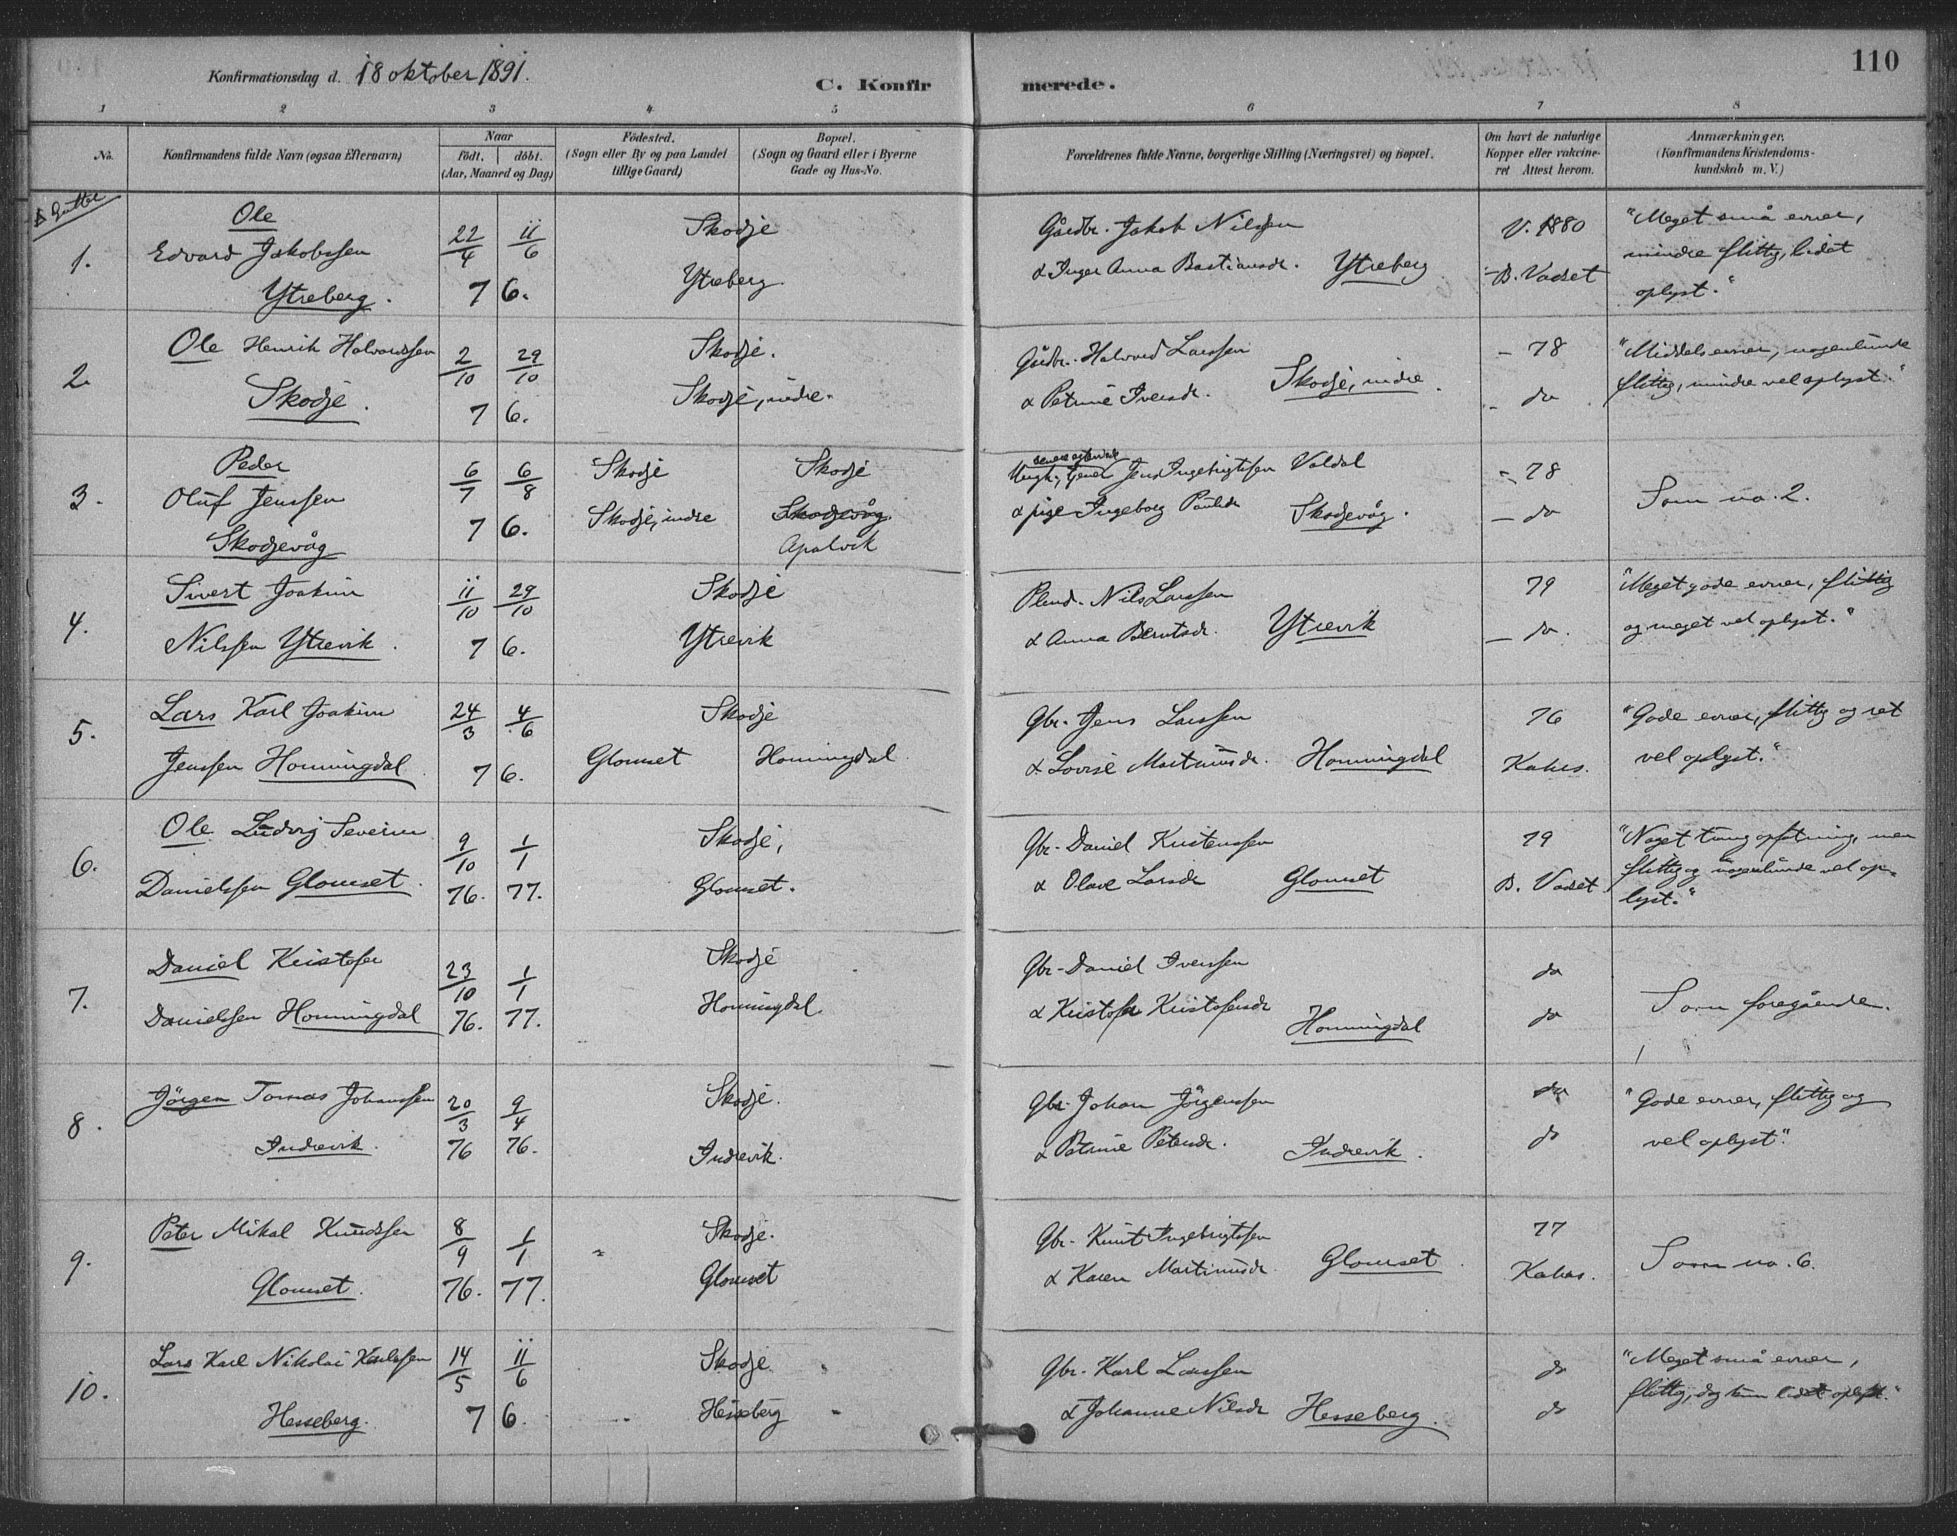 110
Konfirmationsdag d. 18 oktober 1891.
C. Konfirmerede.
1 2 3 4 5 6 7 8
No.
Konfirmandens fulde Navn (ogsaa Efternavn)
Naar
födt. döbt.
(Aar, Maaned og Dag)
Födested.
(Sogn eller By og paa Landet
tillige Gaard)
Bopæl.
(Sogn og Gaard eller i Byerne
Gade og Hus-No.
Forældrenes fulde Navne, borgerlige Stilling (Næringsvei) og Bopæl.
Om havt de naturlige
Kopper eller vakcine-
ret Attest herom.
Anmærkninger.
(Konfirmandens Kristendoms-
kundskab m. V.)
Gutter
1.
Ole
Edvard Jakobssen
Ytreberg.
22/4 11/6
7 6.
Skodje
Ytreberg.
Gårdbr. Jakob Nilssen
& Inger Anna Bastiansdr. Ytreberg
V. 1880
B. Vadset
"Meget små evner,
mindre flittig, lidet
oplyst."
2.
Ole Henrik Halvardssen
Skodje.
2/10 29/10
7 6.
Skodje.
Skodje, indre.
Gårdbr. Halvard Larssen
& Petrine Iversdr. Skodje, indre.
– 78
– do
"Middels evner, nogenlunde
flittig, mindre vel oplyst."
3.
Peder
Oluf Jenssen
Skodjevåg
6/7 6/8
7 6.
Skodje Skodje
Skodje, indre Skodjevåg
Apalvik
Ungk., tjener Jens Ingebrigtssen Valdal
& pige Ingeborg Paulsdr Skodjevåg.
– 78
– do
Som no. 2.
4.
Sivert Joakim
Nilssen Ytrevik.
11/10 29/10
7 6.
Skodje
Ytrevik
Pleud. Nils Larssen
& Anna Berntsdr. Ytrevik
79
– do.
"Meget gode evner, flittig
og meget vel oplyst."
5.
Lars Karl Joakim
Jenssen Honningdal.
24/3 4/6
7 6.
Skodje
Glomset Honningdal.
Gbr. Jens Larssen
& Lovise Martinusdr. Honningdal
76
Kahrs.
"Gode evner, flittig og ret
vel oplyst."
6.
Ole Ludvig Severin
Danielssen Glomset.
9/10 1/1
76. 77.
Skodje,
Glomset.
Gbr. Daniel Kristenssen
& Olave Larsdr Glomset
79
B. Vadset
"Noget tung opfatning, men
flittig og nogenlunde vel op-
lyst."
7.
Daniel Kristofer
Danielssen Honningdal
23/10 1/1
76. 77.
Skodje
Honningdal.
Gbr. Daniel Iverssen
& Kristofa Kristofersdr
Honningdal
do
do
Som foregående.
8.
Jörgen Tomas Johanssen
Indrevik.
20/3 9/4
76 76.
Skodje.
Indrevik.
Gbr. Johan Jörgenssen
& Petrine Petersdr. Indrevik.
do
do
"Gode evner, flittig og
vel oplyst."
9.
Peter Mikal Knudssen
Glomset.
8/9 1/1
76. 77.
Skodje.
Glomset
Gbr. Knut Ingebrigtssen
& Karen Martinusdr. Glomset.
77
Kahrs.
Som no. 6.
10.
Lars Karl Nikolai Karlssen
Hesseberg.
14/5 11/6
7 6.
Skodje
Hesseberg
Gbr. Karl Larssen
& Johanne Nilsdr Hesseberg.
do
do
"Meget små evner,
flittig, dog kun lidet oplyst."